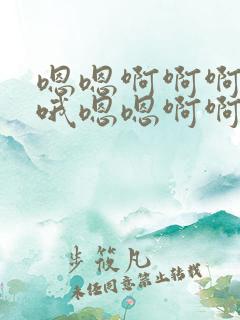 嗯嗯啊啊啊
哦嗯嗯啊啊
步筱凡
未经同意禁止转载